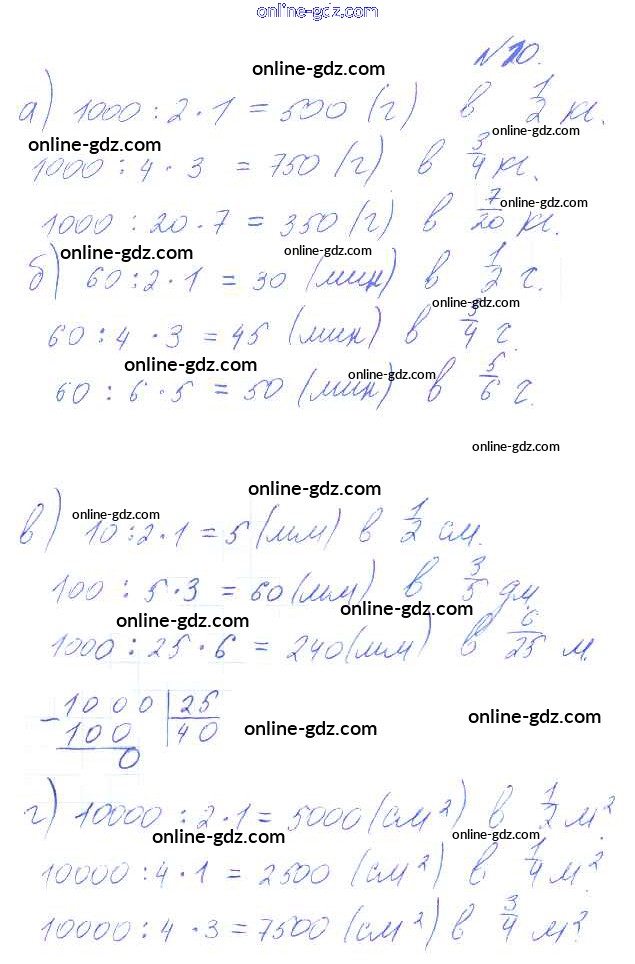 online-gdz.com
N 10.
online-gdz.com
а) 1000 : 2 · 1 = 500 (г) в 1/2 кг.
online-gdz.com online-gdz.com
1000 : 4 · 3 = 750 (г) в 3/4 кг.
online-gdz.com
1000 : 20 · 7 = 350 (г) в 7/20 кг.
online-gdz.com online-gdz.com
б) 60 : 2 · 1 = 30 (мин) в 1/2 ч.
online-gdz.com
60 : 4 · 3 = 45 (мин) в 3/4 ч.
online-gdz.com online-gdz.com
60 : 6 · 5 = 50 (мин) в 5/6 ч.
online-gdz.com
online-gdz.com
online-gdz.com
в) 10 : 2 · 1 = 5 (мм) в 1/2 см.
100 : 5 · 3 = 60 (мм) в 3/5 дм
online-gdz.com online-gdz.com
1000 : 25 · 6 = 240 (мм) в 6/25 м.
- 1000 | 25
100 | 40
0
online-gdz.com online-gdz.com
г) 10000 : 2 · 1 = 5000 (см²) в 1/2 м²
online-gdz.com online-gdz.com
10000 : 4 · 1 = 2500 (см²) в 1/4 м²
10000 : 4 · 3 = 7500 (см²) в 3/4 м²